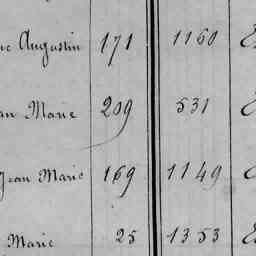 Augustin 171 1160
Marie 209 531
Jean Marie 169 1149
Marie 25 1353